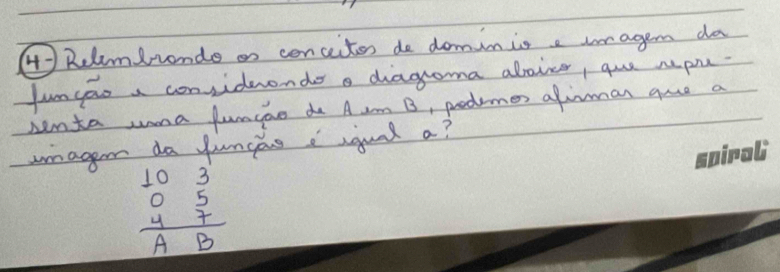 4- Relembrando os conceitos de domínio e imagem da
função e considerando o diagrama abaixo, que repre-
senta uma função de A em B, podemos afirmar que a
imagem da função é igual a?
spiral
10 3
0 5
4 7
A B